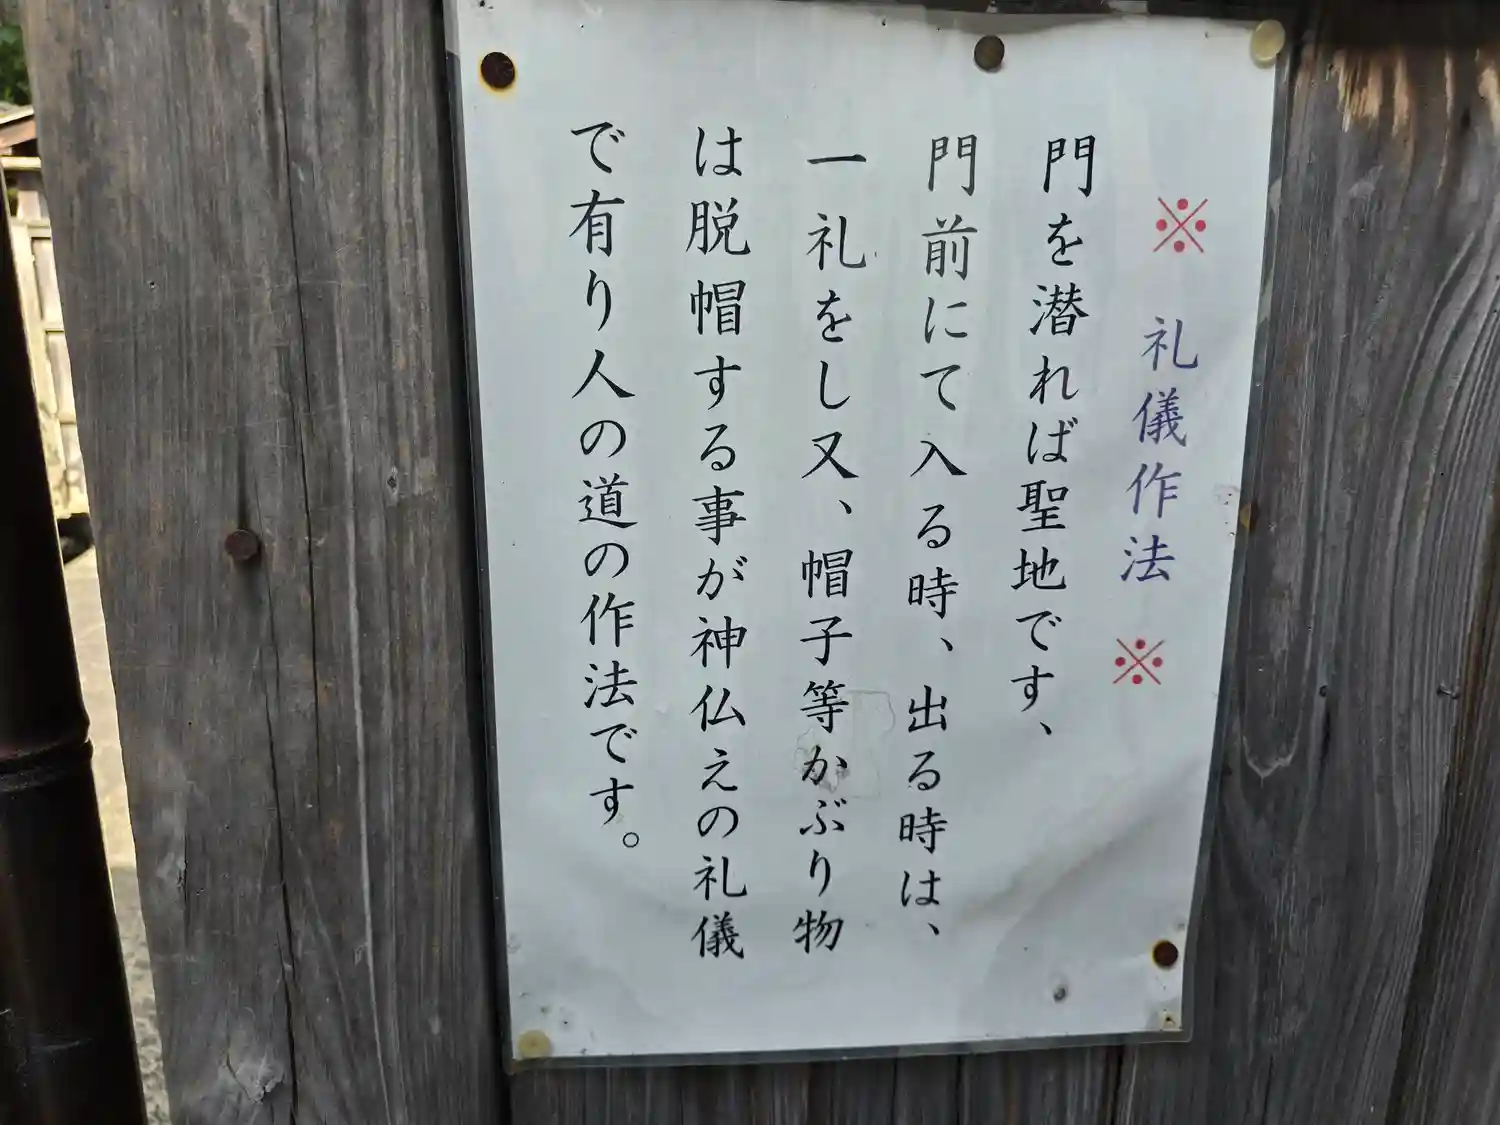 ※ 礼儀作法 ※
門を潜れば聖地です、
門前にて入る時、出る時は、
一礼をし又、帽子等かぶり物
は脱帽する事が神仏えの礼儀
で有り人の道の作法です。